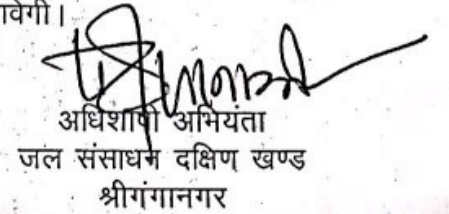 ावेगी।
अधिशाषी अभियंता
जल संसाधन दक्षिण खण्ड
श्रीगंगानगर